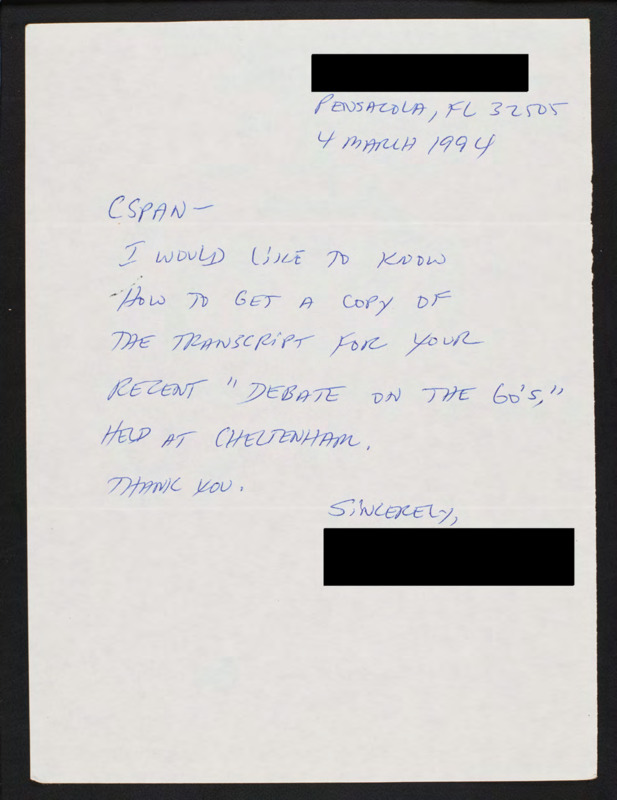 PENSACOLA, FL 32505
4 MARCH 1994
CSPAN—
I WOULD LIKE TO KNOW
HOW TO GET A COPY OF
THE TRANSCRIPT FOR YOUR
RECENT "DEBATE ON THE 60'S,"
HELD AT CHELTENHAM.
THANK YOU.
SINCERELY,